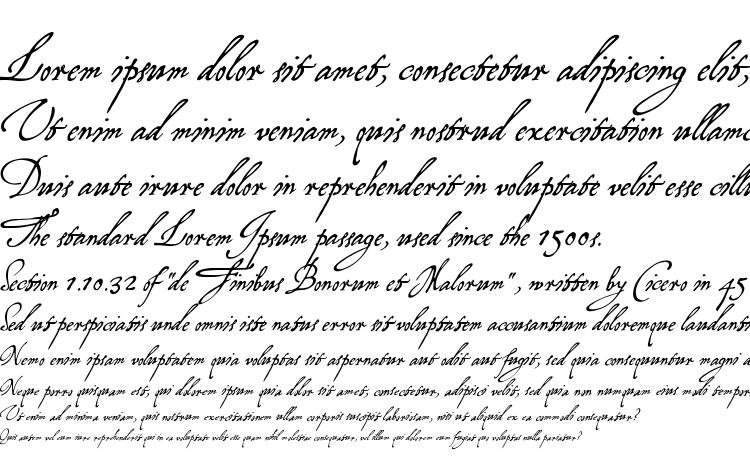 Lorem ipsum dolor sit amet, consectetur adipiscing elit,
Ut enim ad minim veniam, quis nostrud exercitation ullamc
Duis aute irure dolor in reprehenderit in voluptate velit esse cillu
The standard Lorem Ipsum passage, used since the 1500s.
Section 1.10.32 of "de Finibus Bonorum et Malorum", written by Cicero in 45
Sed ut perspiciatis unde omnis iste natus error sit voluptatem accusantium doloremque laudanti
Nemo enim ipsam voluptatem quia voluptas sit aspernatur aut odit aut fugit, sed quia consequuntur magni d
Neque porro quisquam est, qui dolorem ipsum quia dolor sit amet, consectetur, adipisci velit, sed quia non numquam eius modi tempor
Ut enim ad minima veniam, quis nostrum exercitationem ullam corporis suscipit laboriosam, nisi ut aliquid ex ea commodi consequatur?
Quis autem vel eum iure reprehenderit qui in ea voluptate velit esse quam nihil molestiae consequatur, vel illum qui dolorem eum fugiat quo voluptas nulla pariatur?